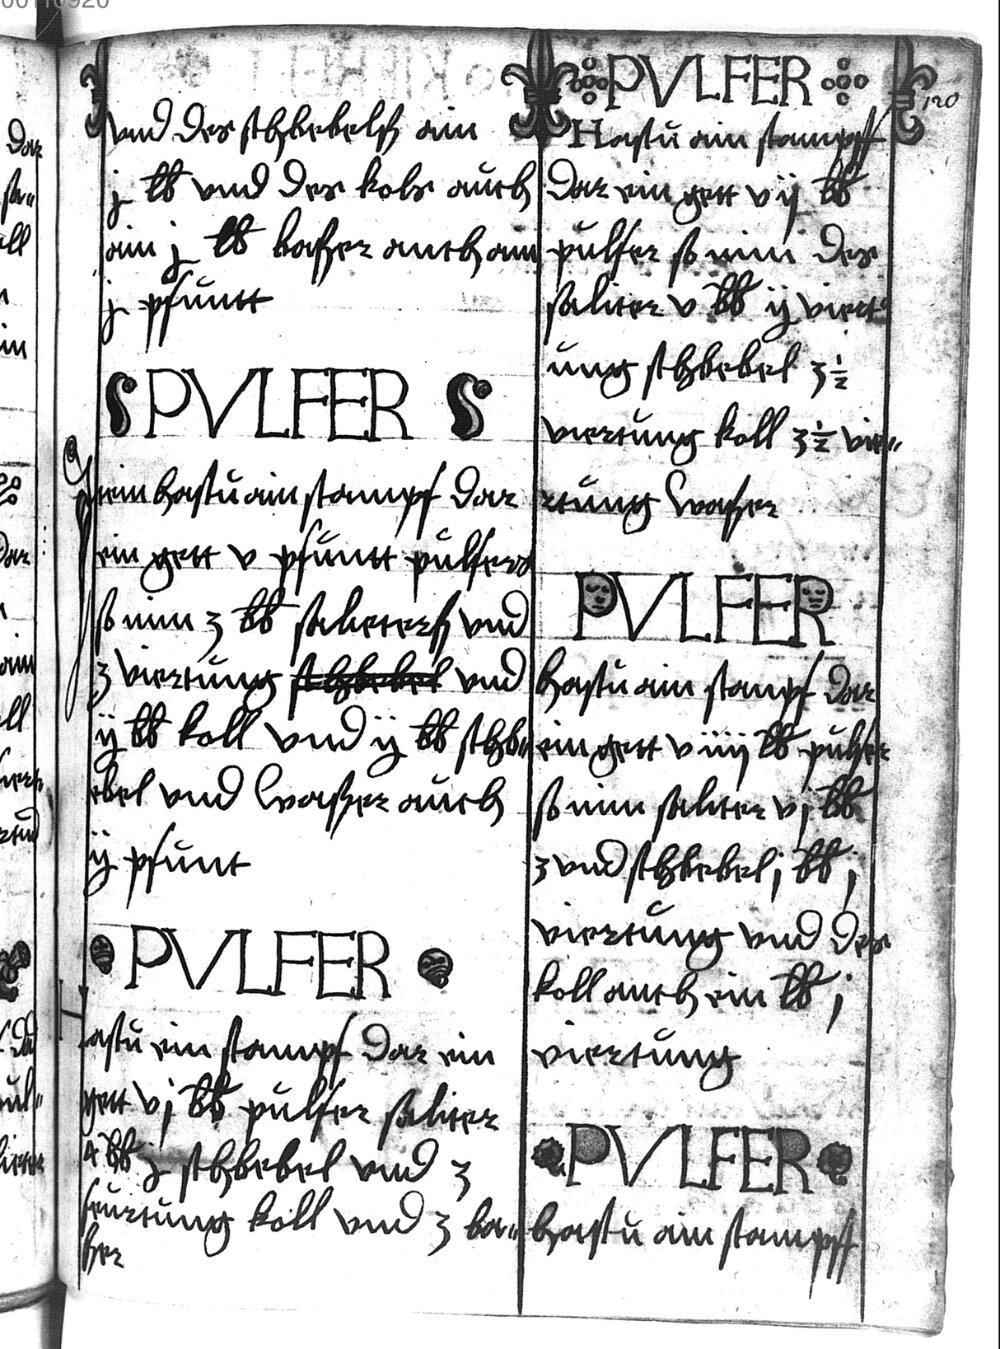 vnd des schbebelsch ain
j lb vnd der kolr auch
ain j lb baſzer auch ain
j pfuntt
PVLFER
Item hastu ain stampf dar
ein gett v pfuntt pulfers
so nim 3 lb salietersch vnd
3 viertung schbebel vnd
ij lb koll vnd ij lb schb„
ebel vnd waſzer auch
ij pfunt
PVLFER
astu ein stampf dar ein
gett vj lb pulfer saliter
4 lb j schbebel vnd 3
feurtung koll vnd 3 ba„
ſzer
PVLFER
120
Hastu ain stampff
dar ein gett vij lb
pulfer so nim des
saliter v lb ij viert
ung schbebel 3 ½
viertung koll 3 ½ vie„
rtung waſzer
PVLFER
hastu ain stampf dar
ein gett viiij lb pulfer
so nim saliter vj lb
3 vnd schbebel j lb j
viertung vnd der
koll auch ein lb j
viertung
PVLFER
hastu ain stampff